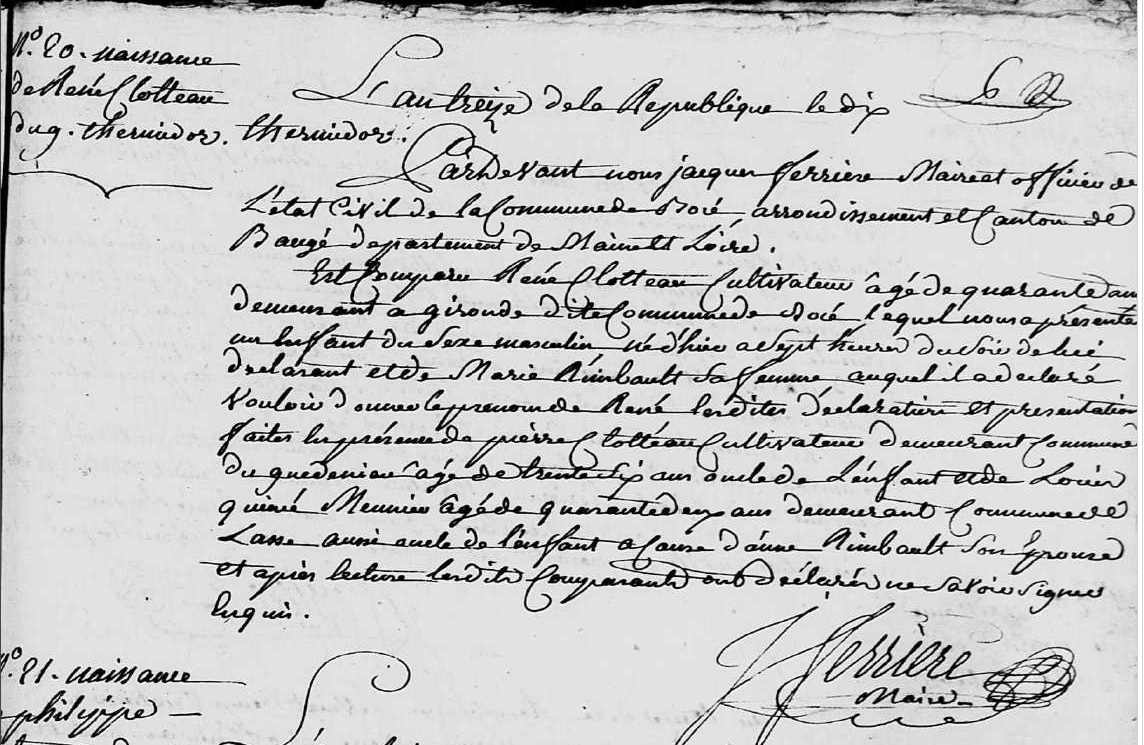 N.º 20. naissance
de René Clotteau
du 9. thermidor.
6
L'an treize de la Republique le dix
thermidor.
Pardevant nous jacques ferriere Maire et officier de
L'état Civil de la Commune de Bocé, arrondissement et Canton de
Baugé departement de Maine et Loire.
Est Comparu René Clotteau Cultivateur âgé de quarante ans
demeurant a gironde dite Commune de Bocé, lequel nous a présenté
un Enfant du Sexe masculin né d'hier a Sept heures du Soir de lui
déclarant et de Marie Rimbault Sa femme, auquel il a declaré
Vouloir donner le prenom de René lesdites déclaration et presentation
faites En présence de pièrre Clotteau Cultivateur demeurant Commune
du guedeniau âgé de trente Six ans oncle de L'énfant et de Louis
Meunier âgé de quarante deux ans demeurant Commune de
Lasse aussi oncle de l'énfant a Cause d'anne Rimbault Son Épouse
Et après lecture lesdits Comparants ont déclarés ne Savoir Signer
Enquis.
J Ferriere
Maire
N.º 21. naissance
philippe